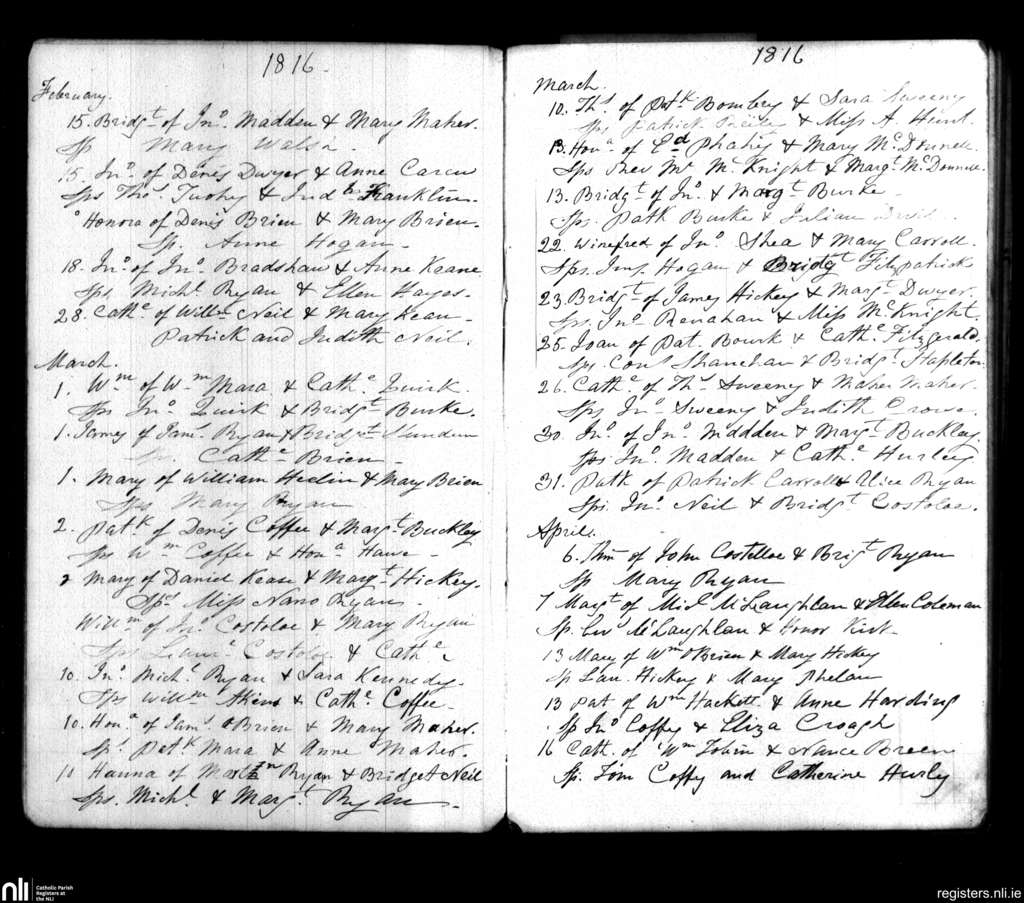 1816
February.
15. Bridgt of Jno. Madden & Mary Maher.
Sp Mary Walsh.
15. Jno. of Denis Dwyer & Anne Carew
Sps Thos. Tuohy & Judh Franklin.
Honora of Denis Brien & Mary Brien.
Sp. Anne Hogan
18. Jno. of Jno. Bradshaw & Anne Keane
Sps. Michl. Ryan & Ellen Hayes.
28. Cathe. of Willm Neil & Mary Kean
Patrick and Judith Neil.
March.
1. Wm of Wm Mara & Cathe Quirk.
Sps Jno. Quirk & Bridgt Burke.
1. James of Jams. Ryan & Bridgt
Cathe Brien
1. Mary of William & Mary Brien
Sps Mary Ryan
2. Patk of Denis Coffee & Margt Buckley
Sps Wm Coffee & Hona Hawe
2 Mary of Daniel Kease & Margt Hickey.
Sps Miss Nano Ryan.
Willm of Jno. Costoloe & Mary Ryan
Sps Costoloe & Cathe
10. Jno. Michl. Ryan & Sara Kennedy.
Sps Willm Akins & Cathe Coffee
10. Hona of Jams. OBrien & Mary Maher.
Sps Patk Mara & Anne Maher.
10 Hanna of Ryan & Bridget Neil
Sps. Michl. & Margt. Ryan
1816
March.
10. Ths. of Patk Bombry & Sara Sweeny
Sps Patrick & Miss A. Hunt.
13. Hona of Ed Phahey & Mary McDonnell.
Sps McKnight & Margt McDonnell.
13. Bridgt of Jno. & Margt Burke
Sps. Patk Burke & Julian
22. Winefred of Jno. Shea & Mary Carroll.
Sps. Hogan & Bridgt Fitzpatrick
23. Bridgt of James Hickey & Margt Dwyer.
Sps. Jno. Renahan & Miss McKnight.
25. Joan of Pat. Bourk & Cathe. Fitzgerald.
Sps. Con Shanehan & Bridgt Stapleton
26. Cathe of Ths Sweeny & Maher Maher.
Sps Jno. Sweeny & Judith Crowe.
30. Jno. of Jno Madden & Margt Buckley.
Sps Jno. Madden & Cathe. Hurley
31. Patk of Patrick Carroll & Alice Ryan
Sps. Jno. Neil & Bridgt Costoloe.
April.
6. of John Costelloe & Brigt Ryan
Sp Mary Ryan
7 Margt of Micl McLaughlan & Ellen Coleman
Sp. McLaughlan & Honor Kirk
13 Mary of Wm OBrien & Mary Hickey
Sp Lau. Hickey & Mary Phelan
13 Pat of Wm Hackett & Anne Harding
Sp Jno Coffey & Eliza Croagh
16 Cath. of Wm Tobin & Nance Breen
Sp. Tom Coffy and Catherine Hurly
nli
Catholic Parish
Registers at
the NLI
registers.nli.ie